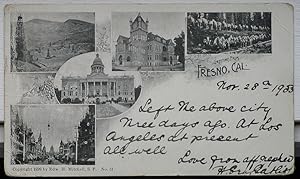 GREETINGS FROM
FRESNO, CAL.
Nov. 28th 1903
Left the above city
three days ago. At Los
Angeles at present
all well
Love from
Copyright 1899 by Edw. H. Mitchell, S. F. No. 51